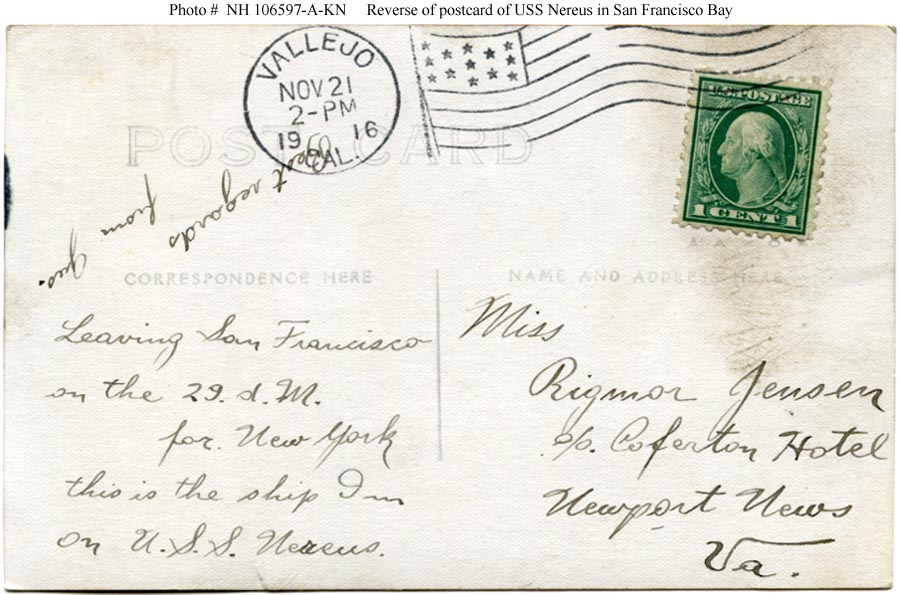 Photo # NH 106597-A-KN Reverse of postcard of USS Nereus in San Francisco Bay
VALLEJO
NOV 21
2-PM
1916
CAL.
U.S. POSTAGE
1 CENT 1
POST CARD
Best regards
from
Geo.
CORRESPONDENCE HERE
NAME AND ADDRESS HERE
Leaving San Francisco
on the 29. d. M.
for. New York
this is the ship I m
on U.S.S. Nereus.
Miss
Rigmor Jensen
c/o. Coferton Hotel
Newport News
Va.